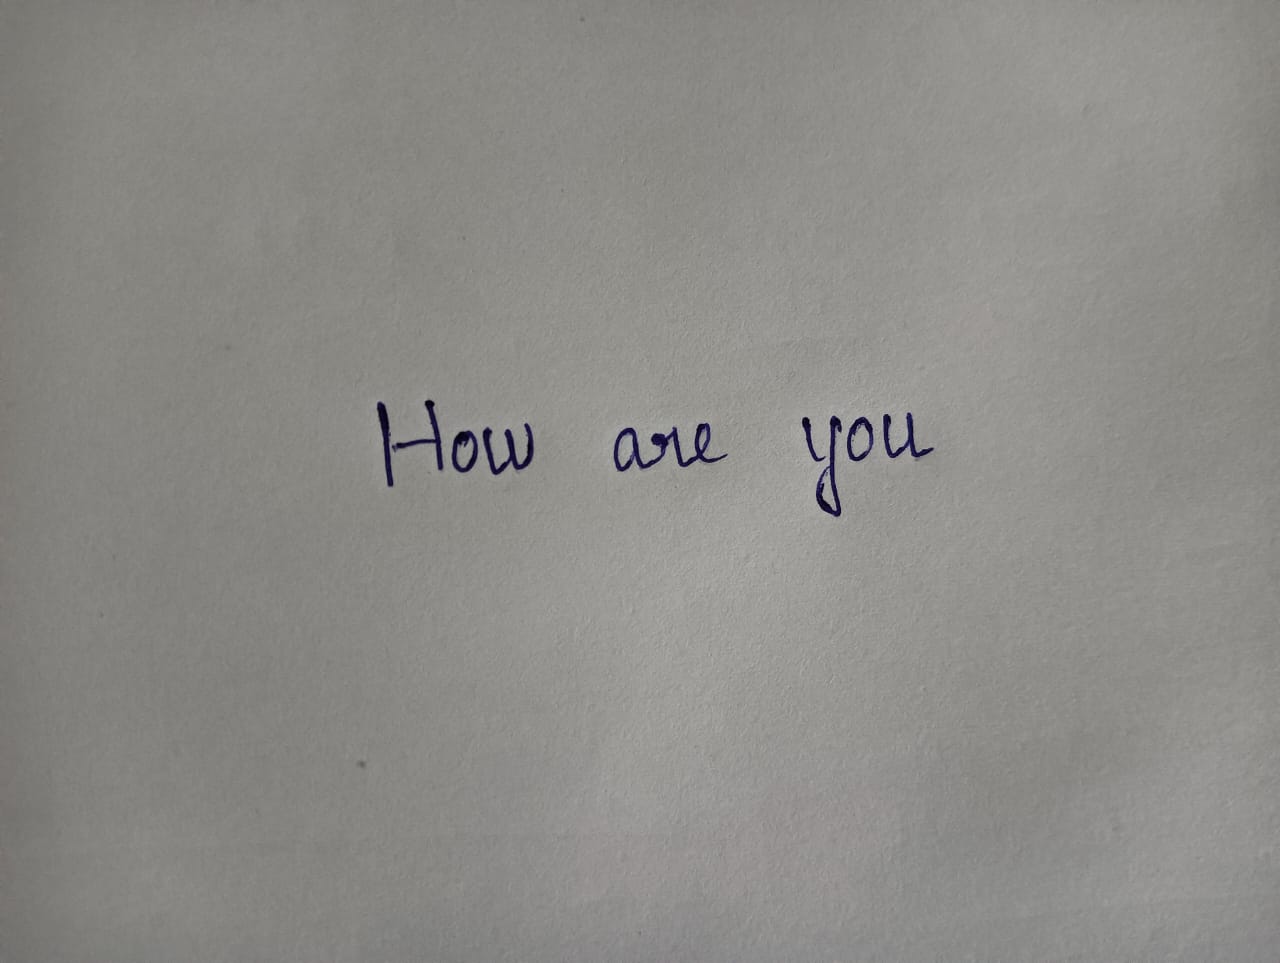 How are you